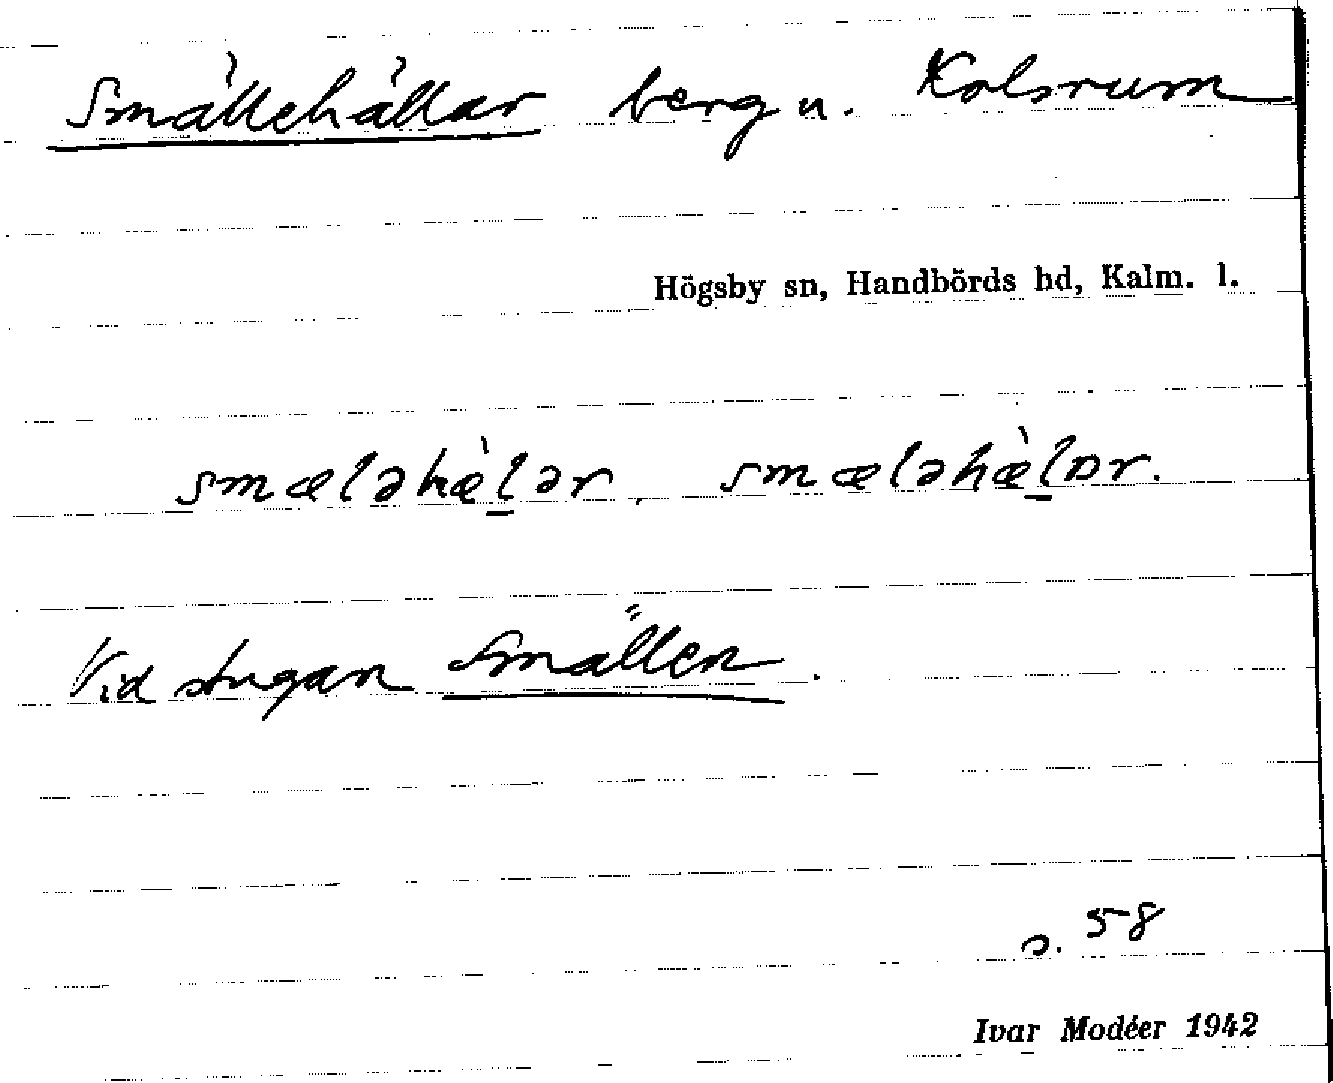 Smällehällar berg u. Kolsrum
Högsby sn, Handbörds hd, Kalm. l.
smæləhæ̀lər, smæləhæ̀lɒr.
Vid stugan Smällen.
s. 58
Ivar Modéer 1942